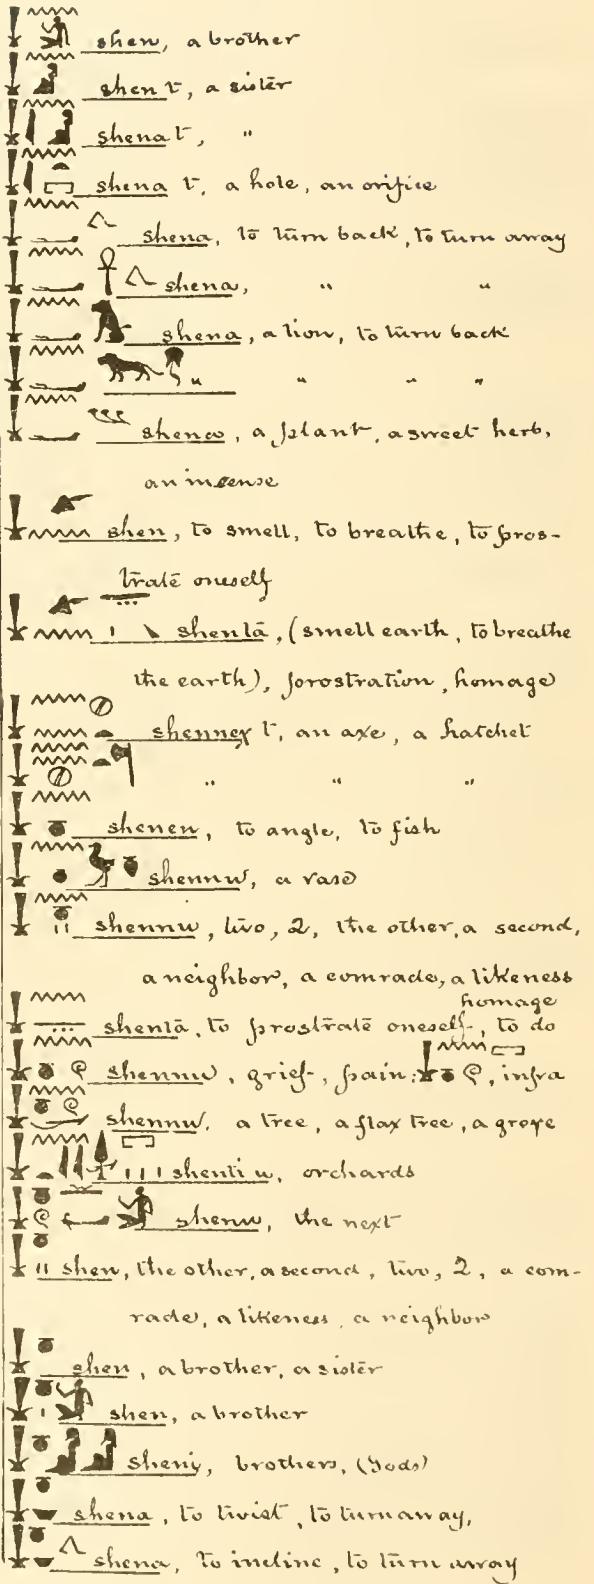 shen, a brother
shen t, a sister
shena t, "
shena t, a hole, an orifice
shena, to turn back, to turn away
shena, " "
shena, a lion, to turn back
" " " "
shena, a plant, a sweet herb,
an incense
shen, to smell, to breathe, to pros-
trate oneself
shentā, (smell earth, to breathe
the earth), prostration, homage
shenneχ t, an axe, a hatchet
" " "
shenen, to angle, to fish
shennu, a vase
shennu, two, 2, the other, a second,
a neighbor, a comrade, a likeness
homage
shentā, to prostrate oneself, to do
shennu, grief, pain: infra
shennu, a tree, a flax tree, a grove
shenti u, orchards
shenu, the next
shen, the other, a second, two, 2, a com-
rade, a likeness, a neighbor
shen, a brother, a sister
shen, a brother
brothers, (Gods)
shena, to twist, to turn away,
shena, to incline, to turn away